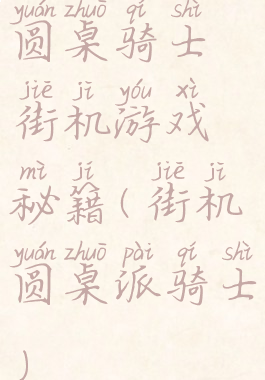 yuán zhuō qí shì
圆桌骑士
jiē jī yóu xì
街机游戏
mì jí jiē jī
秘籍(街机
yuán zhuō pài qí shì
圆桌派骑士
)